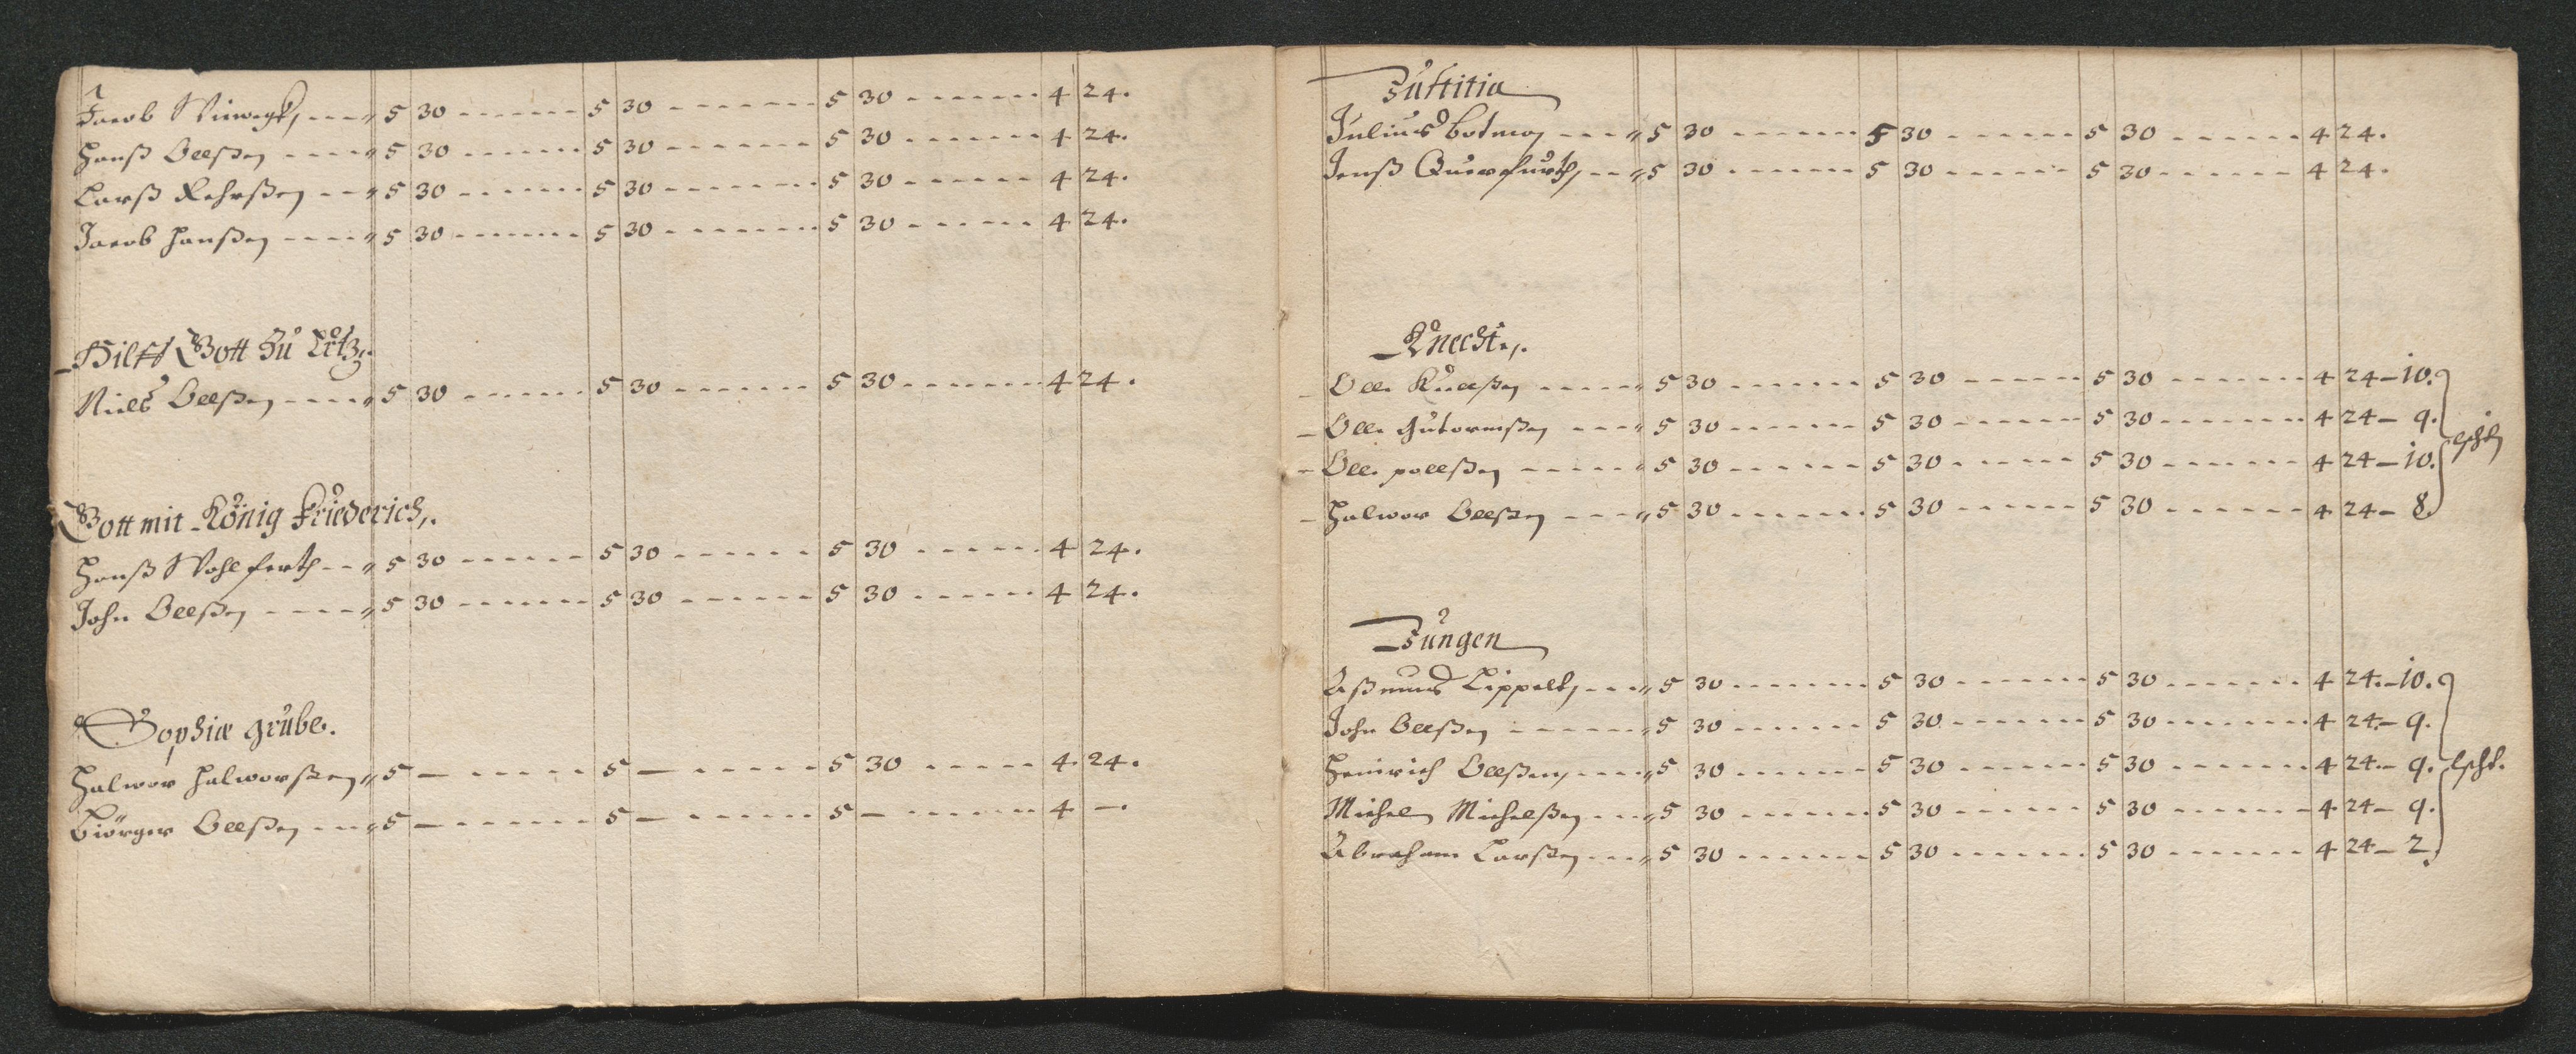 Jacob Winegk, ---- " 5 30 ------ 5 30 ------- 5 30 ------ 4 24.
Hanß Olßen ---- " 5 30 ------ 5 30 ------- 5 30 ------ 4 24.
Larß Rehrßen --- " 5 30 ------ 5 30 ------- 5 30 ------ 4 24.
Jacob Hanßen ---- " 5 30 ------ 5 30 ------- 5 30 ------ 4 24.
Hilff Gott Zu
Niels Olßen ---- " 5 30 ------ 5 30 ------- 5 30 ------ 4 24.
Gott mit König Friederich,.
Hanß Wohlferth -- " 5 30 ------ 5 30 ------ 5 30 ------ 4 24.
John Olßen ---- " 5 30 ------ 5 30 ------ 5 30 ------ 4 24.
Sophiæ grube.
Halwor Halworßen " 5 — ------ 5 — ------ 5 30 ----- 4 24.
Biörger Olßen --- " 5 — ------ 5 — ------ 5 — ------ 4 —.
Justitia
Julius Botmar --- " 5 30 ------ 5 30 ------ 5 30 ------ 4 24.
Jenß Querfurth, -- " 5 30 ------ 5 30 ------ 5 30 ------ 4 24.
Knechte,.
Olle ---- " 5 30 ------ 5 30 ----- 5 30 ------ 4 24 — 10.
Olle Gutormßen --- " 5 30 ------ 5 30 ----- 5 30 ------ 4 24 — 9.
Olle pollßen ---- " 5 30 ------ 5 30 ----- 5 30 ------ 4 24 — 10.
Halwor Olßen --- " 5 30 ------ 5 30 ----- 5 30 ------ 4 24 — 8.
Jungen
Aßmus Lippelt, --- " 5 30 ------ 5 30 ------ 5 30 ------ 4 24. — 10.
John Olßen ----- " 5 30 ------ 5 30 ------ 5 30 ------ 4 24. — 9.
Heinrich Olßen, --- " 5 30 ------ 5 30 ------ 5 30 ------ 4 24. — 9. lßht.
Michel Michelßen --- " 5 30 ------ 5 30 ------ 5 30 ------ 4 24 — 9.
Abraham Larßen --- " 5 30 ------ 5 30 ------ 5 30 ------ 4 24 — 2.